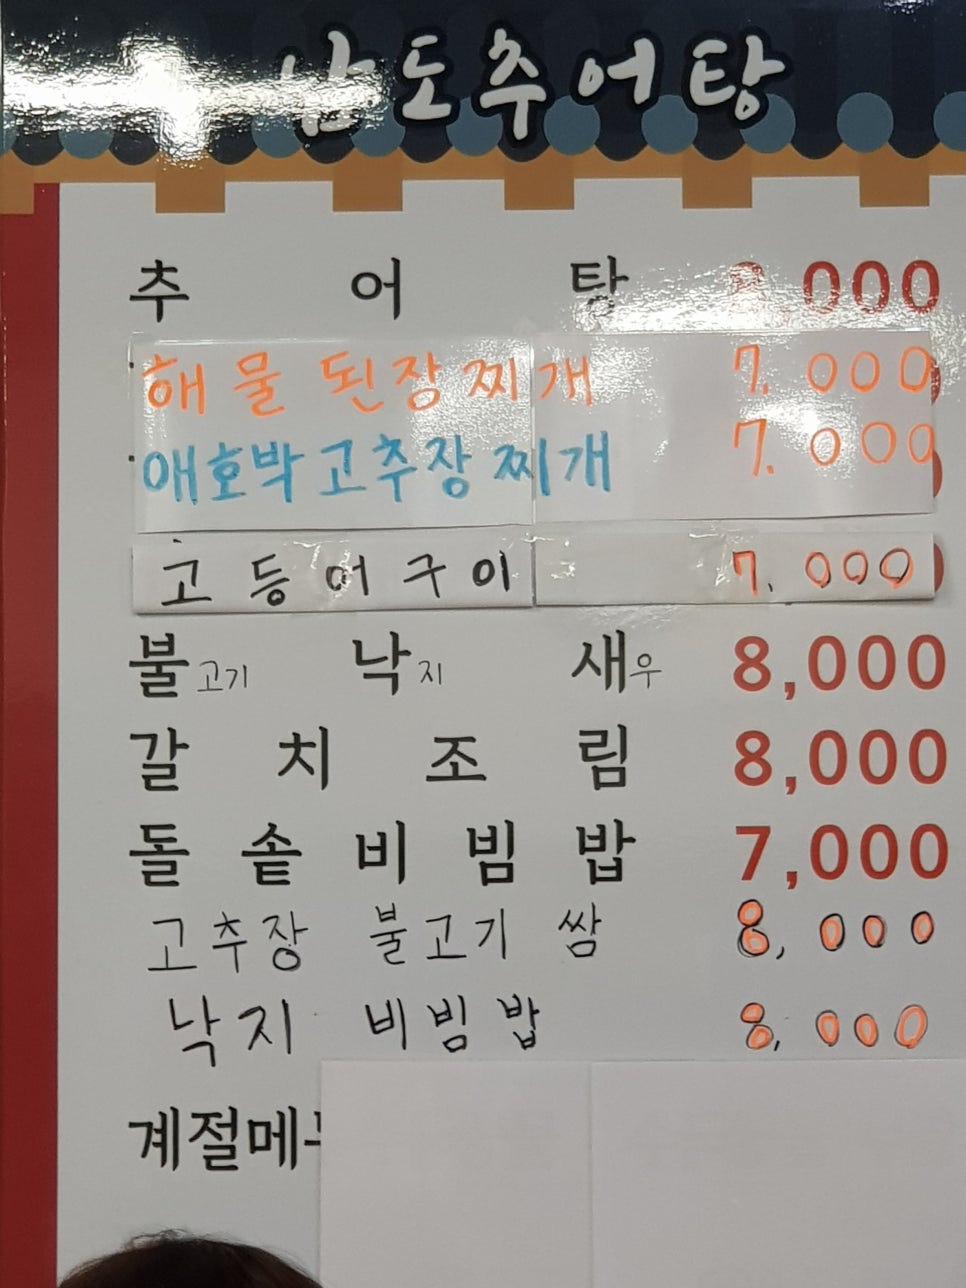 남도추어탕
추어탕 ,000
해물된장찌개 7.000
애호박고추장찌개 7.000
고등어구이 7.000
불고기 낙지 새우 8,000
갈치조림 8,000
돌솥비빔밥 7,000
고추장 불고기 쌈 8,000
낙지 비빔밥 8,000
계절메